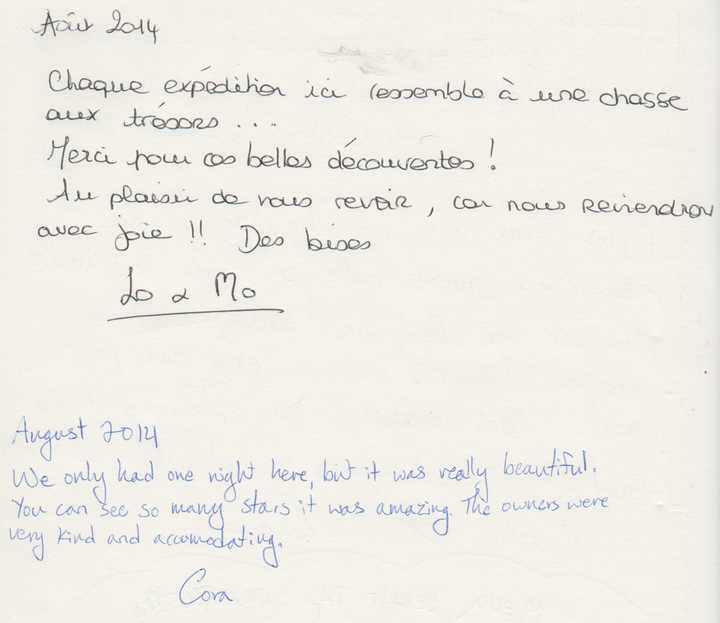 Août 2014
Chaque expédition ici ressemble à une chasse
aux trésors ...
Merci pour ces belles découvertes !
Au plaisir de vous revoir, car nous reviendron
avec joie !! Des bises
Lo & Mo
August 2014
We only had one night here, but it was really beautiful.
You can see so many stars it was amazing. The owners were
very kind and accomodating.
Cora